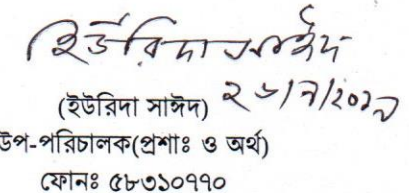 ইউরিদা সাঈদ
(ইউরিদা সাঈদ)
উপ-পরিচালক(প্রশাঃ ও অর্থ)
ফোনঃ ৫৮৩১০৭৭০